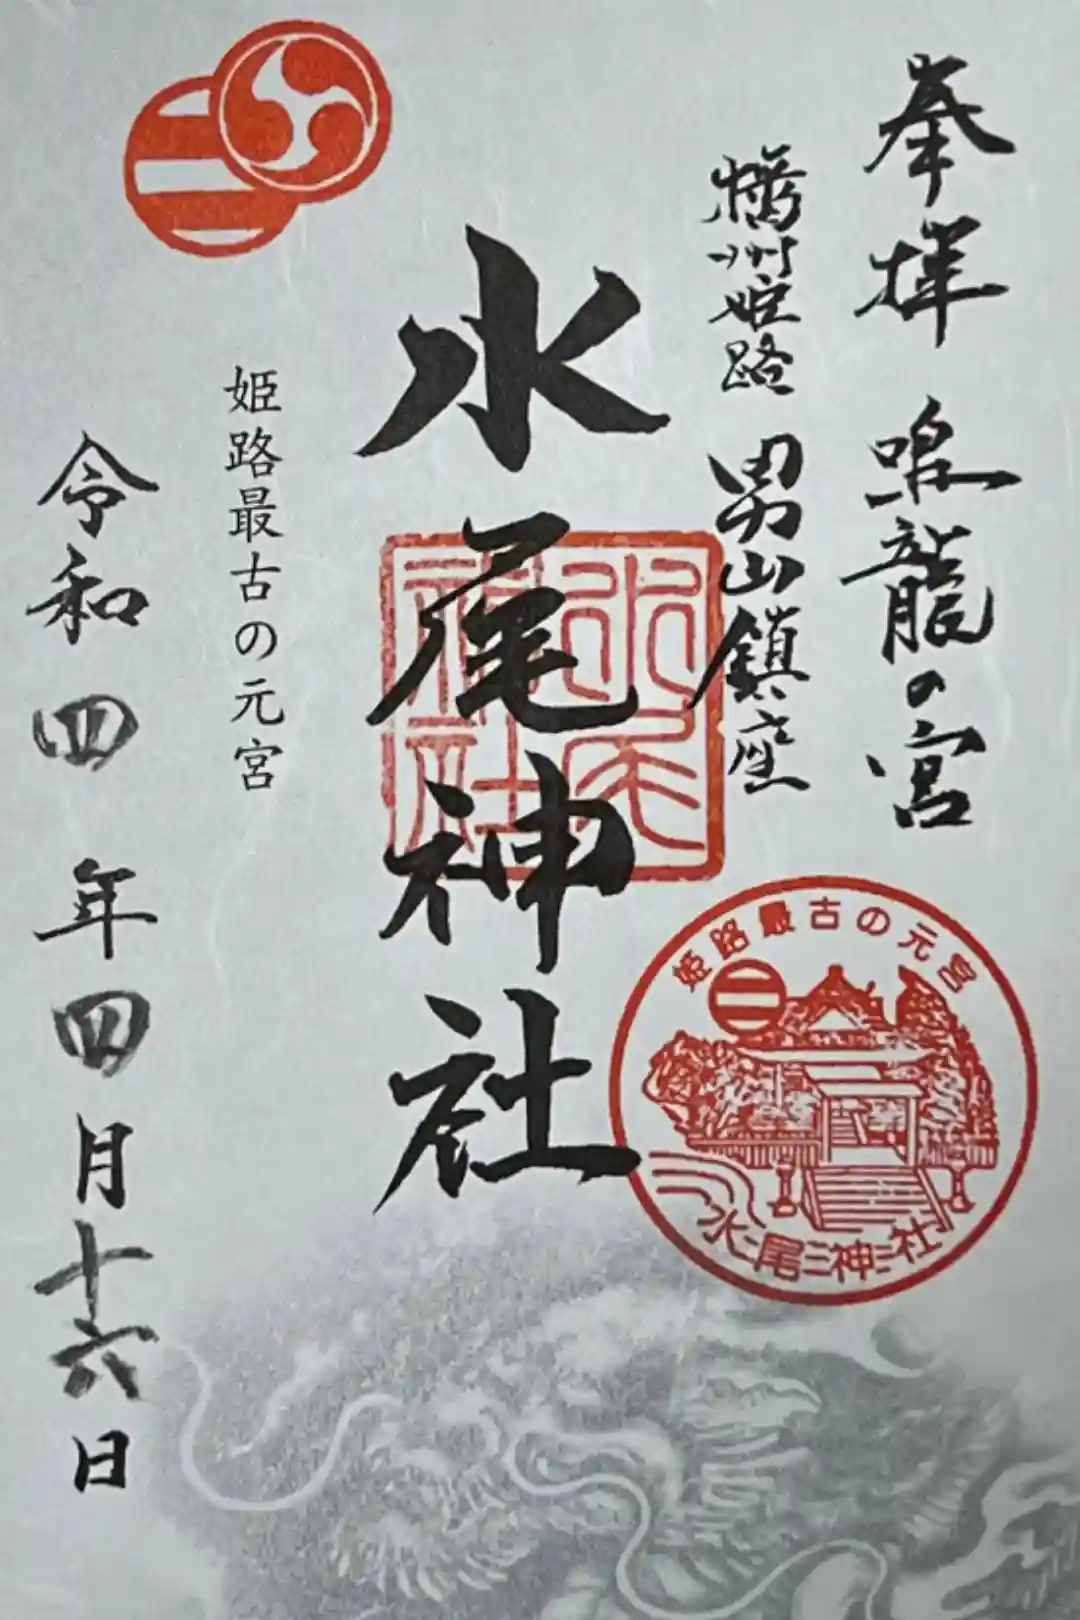 奉拝 鳴龍の宮
播州姫路 男山鎮座
水尾神社
水尾神社
姫路最古の元宮
令和四年四月十六日
姫路最古の元宮
水尾神社